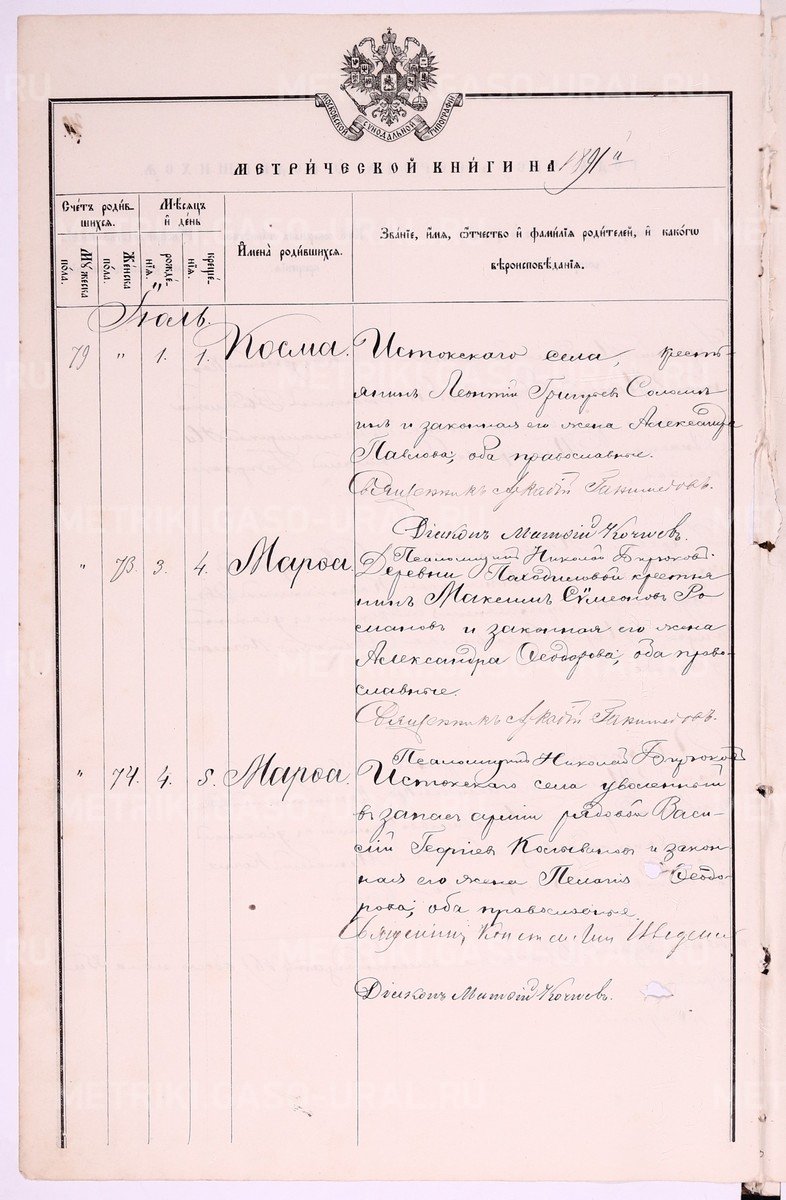 МОСКОВСКОЙ СѴНОДАЛЬНОЙ ТИПОГРАФІИ
МЕТРИ́ЧЕСКОЙ КНИ́ГИ НА 1891й
Сче́тъ роди́в-
шихся.
Мѣ́сяцъ
и҆ де́нь
И҆мена̀ роди́вшихся.
Зва́нїе, и҆́мя, ѻ҆́тчество и҆ фами́лїя роди́телей, и҆ како́гѡ
вѣроисповѣ́данїя.
Мꙋ́жеска по́ла.
Же́нска по́ла.
рожде́-нїѧ.
креще́-нїѧ.
Іюль.
79 " 1. 1. Косма. Истокскаго села, кресть-
янинъ Леонтій Григорьевъ Соломи
инъ и законная его жена Александра
Павлова, оба православные.
Священникъ Аркадій Ганимедовъ.
Діаконъ Матѳій Кочневъ.
Псаломщикъ Николай Бирюковъ.
" 73. 3. 4. Марѳа. Деревни крестья
нинъ Максимъ Сѵмеоновъ Ро-
мановъ и законная его жена
Александра Ѳеодорова, оба право-
славные.
Священникъ Аркадій Ганимедовъ.
Псаломщикъ Николай Бирюковъ
" 74. 4. 5. Марѳа. Истокскаго села уволенный
въ запасъ арміи рядовой Васи-
лій Георгіевъ и закон-
ная его жена Пелагія Ѳеодо-
рова, оба православные.
Священникъ Константинъ
Діаконъ Матѳій Кочневъ.
METRIKI.GASO-URAL.RU